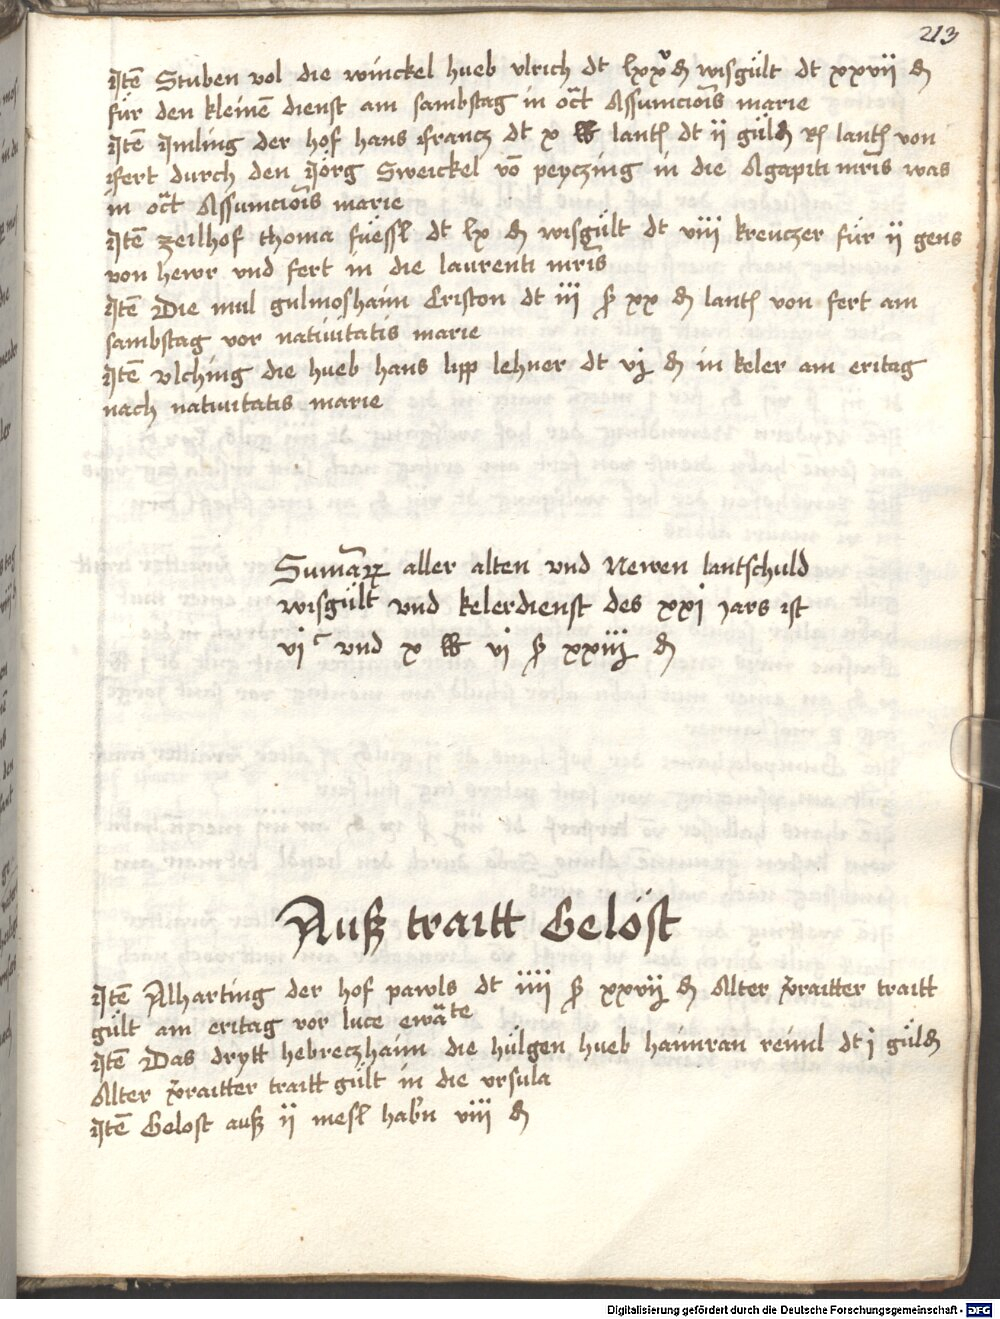 213
Itē Stuben vol die winckel hueb vlrich dt lxxv ₰ wisgült dt xxvii ₰
für den kleinē dienst am sambstag in oct̄ Assumcioīs marie
Itē Imling der hof hans francz dt x lb lantſ dt ij güld Rſ lantſ von
fert durch den Jörg Sweickel vō peyczing in die Agapiti mr̄is was
in oct̄ Assumcioīs marie
Itē zeilhof thoma füessl dt lx ₰ wisgült dt viii kreuczer für ij gens
von hewr vnd fert in die laurenti mr̄is
Itē Die mul gulmoshaim Criston dt iij ß xx ₰ lantſ von fert am
sambstag vor natiuitatis marie
Itē vlching die hueb hans lipp lehner dt vj ₰ in keler am eritag
nach natiuitatis marie
Sumar̄ aller alten vnd Newen lantschuld
wisgült vnd kelerdienst des xxj jars ist
vj c vnd x lb vj ß xxiij ₰
Auß traitt Gelöst
Itē Alharting der hof pawls dt iiij ß xxvij ₰ Alter traitt
gült am eritag vor luce ewāte
Itē Das drytt hebreczhaim die hülgen hueb haimran reiml dt j güld
Alter traitt gült in die vrsula
Itē Gelöst auß ij mesl habn viii ₰
Digitalisierung gefördert durch die Deutsche Forschungsgemeinschaft - DFG